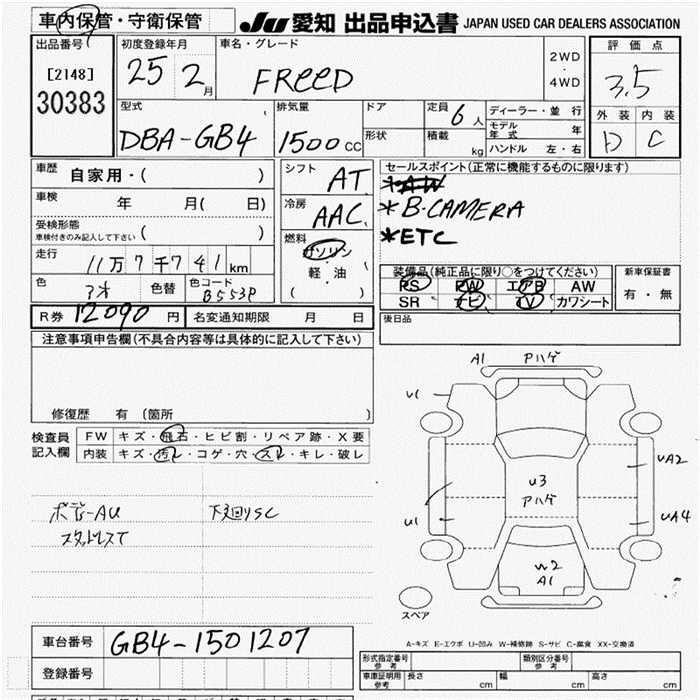 車内保管・守衛保管 JU 愛知 出品申込書 JAPAN USED CAR DEALERS ASSOCIATION
出品番号 [2148] 30383
初度登録年月 25 2月
車名・グレード FREED
2WD・4WD
評価点 3.5
外装 D 内装 C
型式 DBA-GB4
排気量 1500cc
ドア 形状
定員 6人
積載 kg
ディーラー・並行
モデル年式 年
ハンドル 左・右
車歴 自家用・( )
車検 年 月( 日)
受検形態 車検付きのみ記入して下さい ( )
走行 11万7千741km
色 色替 色コード B553P
シフト AT
冷房 AAC
燃料 ガソリン 軽・油 ( )
セールスポイント(正常に機能するものに限ります)
*AW
*B・CAMERA
*ETC
装備品(純正品に限り○をつけてください)
PS PW エアB AW
SR ナビ TV カワシート
新車保証書 有・無
R券 12090円 名変通知期限 月 日
後日品
注意事項申告欄(不具合内容等は具体的に記入して下さい)
修復歴 有 (箇所 )
検査員記入欄
FW キズ・飛石・ヒビ割・リペア跡・X要
内装 キズ・汚レ・コゲ・穴・スレ・キレ・破レ
ボデー AU 下廻りSC
スタッドレスT
A1 アハゲ
U1
U3 アハゲ
UA2
U1
UA4
W2 A1
スペア
A-キズ E-エクボ U-凹み W-補修跡 S-サビ C-腐食 XX-交換済
車台番号 GB4-1501207
登録番号
形式指定番号 参考 類別区分番号 参考
車庫証明用 参考 長さ cm 幅 cm 高さ cm